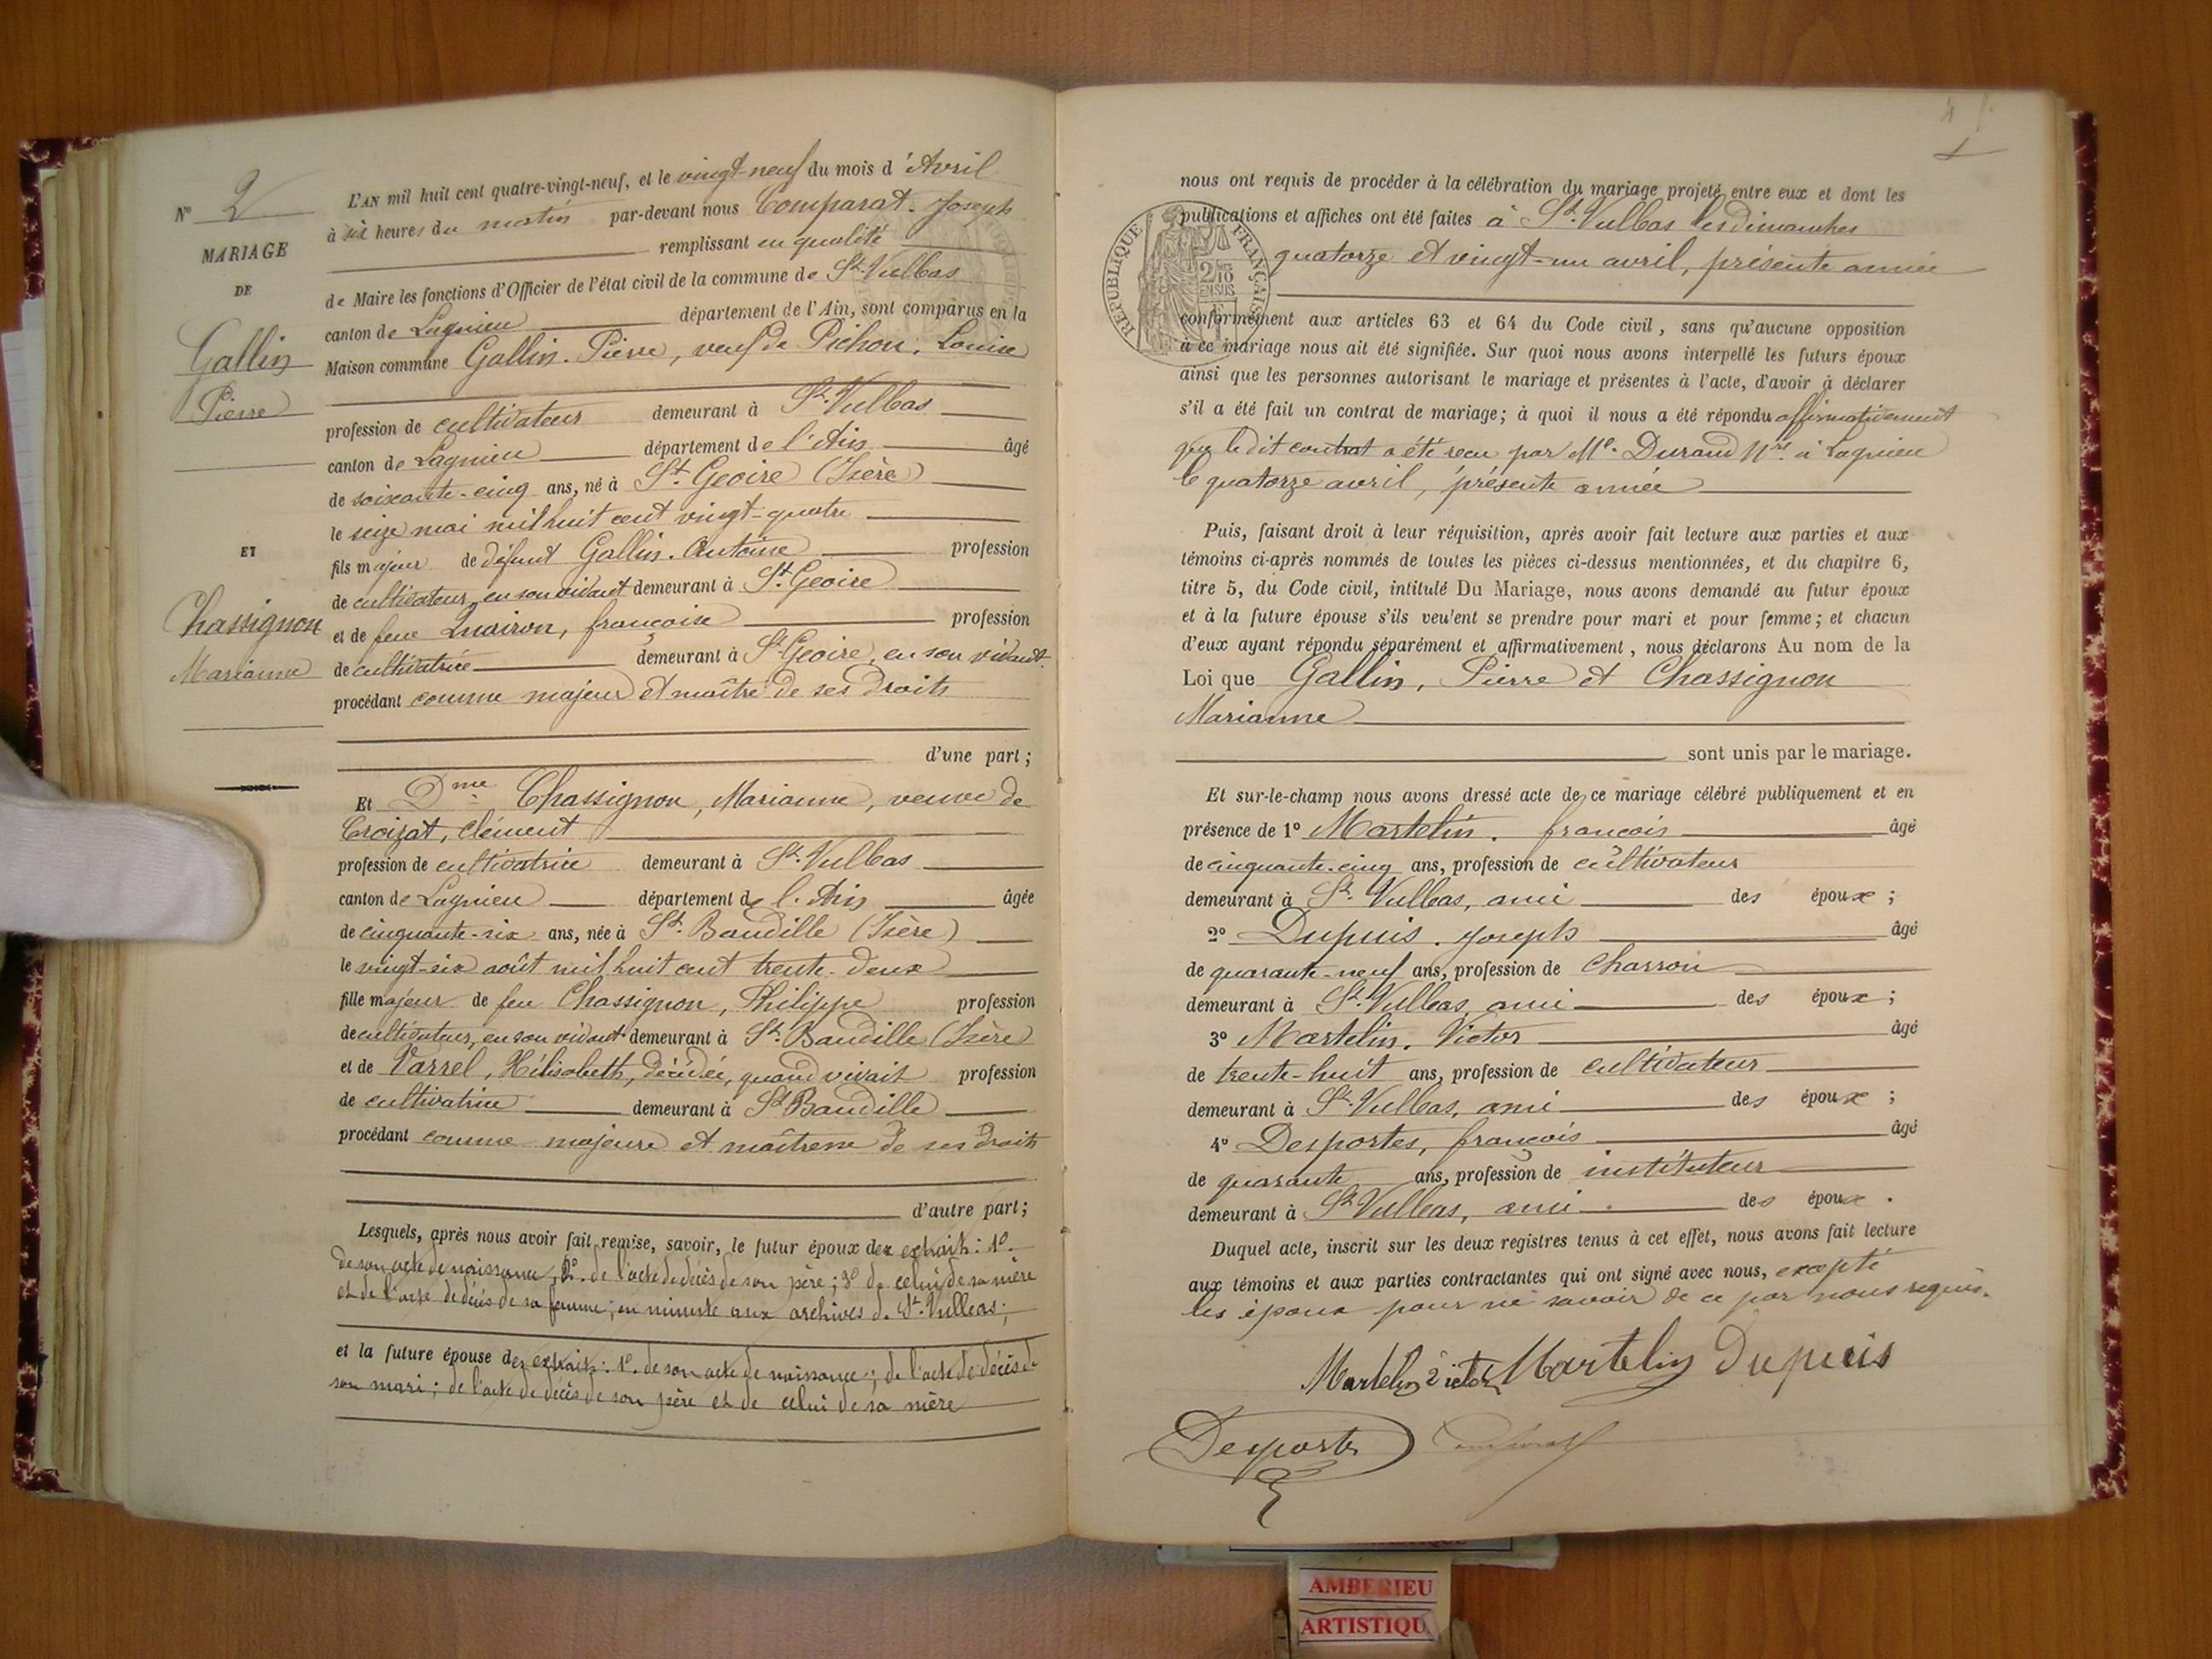 N° 2
MARIAGE
DE
Gallin
Pierre
ET
Chassignon
Marianne
L'AN mil huit cent quatre-vingt-neuf, et le vingt-neuf du mois d'Avril
à six heures du matin par-devant nous Comparat. Joseph
remplissant en qualité
de Maire les fonctions d'Officier de l'état civil de la commune de St. Vulbas
canton de Lagnieu département de l'Ain, sont comparus en la
Maison commune Gallin. Pierre, veuf de Pichon. Louise
profession de cultivateur demeurant à St. Vulbas
canton de Lagnieu département de l'Ain âgé
de soixante-cinq ans, né à St. Geoire (Isère)
le seize mai mil huit cent vingt-quatre
fils majeur de défunt Gallin. Antoine profession
de cultivateur, en son vivant demeurant à St. Geoire
et de feue françoise profession
de cultivatrice demeurant à St. Geoire, en son vivant.
procédant comme majeur et maître de ses droits
d'une part ;
Et Dme Chassignon, Marianne, veuve de
Croizat, Clément
profession de cultivatrice demeurant à St. Vulbas
canton de Lagnieu département de l'Ain âgée
de cinquante-six ans, née à St. Baudille (Isère)
le vingt-six août mil huit cent trente-deux
fille majeur de feu Chassignon, Philippe profession
de cultivateur, en son vivant demeurant à St. Baudille (Isère)
et de Varrel, Hélisabeth, décédée, quand vivait profession
de cultivatrice demeurant à St Baudille
procédant comme majeure et maîtresse de ses droits
d'autre part ;
Lesquels, après nous avoir fait remise, savoir, le futur époux des extraits : 1°.
de son acte de naissance, 2°. de l'acte de décès de son père ; 3° de celui de sa mère
et de l'acte de décès de sa femme ; en minute aux archives de St. Vulbas ;
et la future épouse des extraits : 1°. de son acte de naissance ; de l'acte de décès de
son mari ; de l'acte de décès de son père et de celui de sa mère
nous ont requis de procéder à la célébration du mariage projeté entre eux et dont les
publications et affiches ont été faites à St. Vulbas les dimanches
quatorze et vingt-un avril, présente année
RÉPUBLIQUE FRANÇAISE
2/10
EN SUS
conformément aux articles 63 et 64 du Code civil, sans qu'aucune opposition
à ce mariage nous ait été signifiée. Sur quoi nous avons interpellé les futurs époux
ainsi que les personnes autorisant le mariage et présentes à l'acte, d'avoir à déclarer
s'il a été fait un contrat de mariage ; à quoi il nous a été répondu affirmativement
que le dit contrat a été reçu par Me. Durand Nre. à Lagnieu
le quatorze avril, présente année
Puis, faisant droit à leur réquisition, après avoir fait lecture aux parties et aux
témoins ci-après nommés de toutes les pièces ci-dessus mentionnées, et du chapitre 6,
titre 5, du Code civil, intitulé Du Mariage, nous avons demandé au futur époux
et à la future épouse s'ils veulent se prendre pour mari et pour femme ; et chacun
d'eux ayant répondu séparément et affirmativement, nous déclarons Au nom de la
Loi que Gallin, Pierre et Chassignon
Marianne
sont unis par le mariage.
Et sur-le-champ nous avons dressé acte de ce mariage célébré publiquement et en
présence de 1° Martelin. françois âgé
de cinquante-cinq ans, profession de cultivateur
demeurant à St. Vulbas, ami des époux ;
2° Dupuis. Joseph âgé
de quarante-neuf ans, profession de charron
demeurant à St. Vulbas, ami des époux ;
3° Martelin. Victor âgé
de trente-huit ans, profession de cultivateur
demeurant à St. Vulbas, ami des époux ;
4° Desportes, françois âgé
de quarante ans, profession de instituteur
demeurant à St. Vulbas, ami des époux.
Duquel acte, inscrit sur les deux registres tenus à cet effet, nous avons fait lecture
aux témoins et aux parties contractantes qui ont signé avec nous, excepté
les époux pour ne savoir de ce par nous requis.
Martelin Victor Martelin Dupuis
Desportes Comparat
AMBERIEU
ARTISTIQU